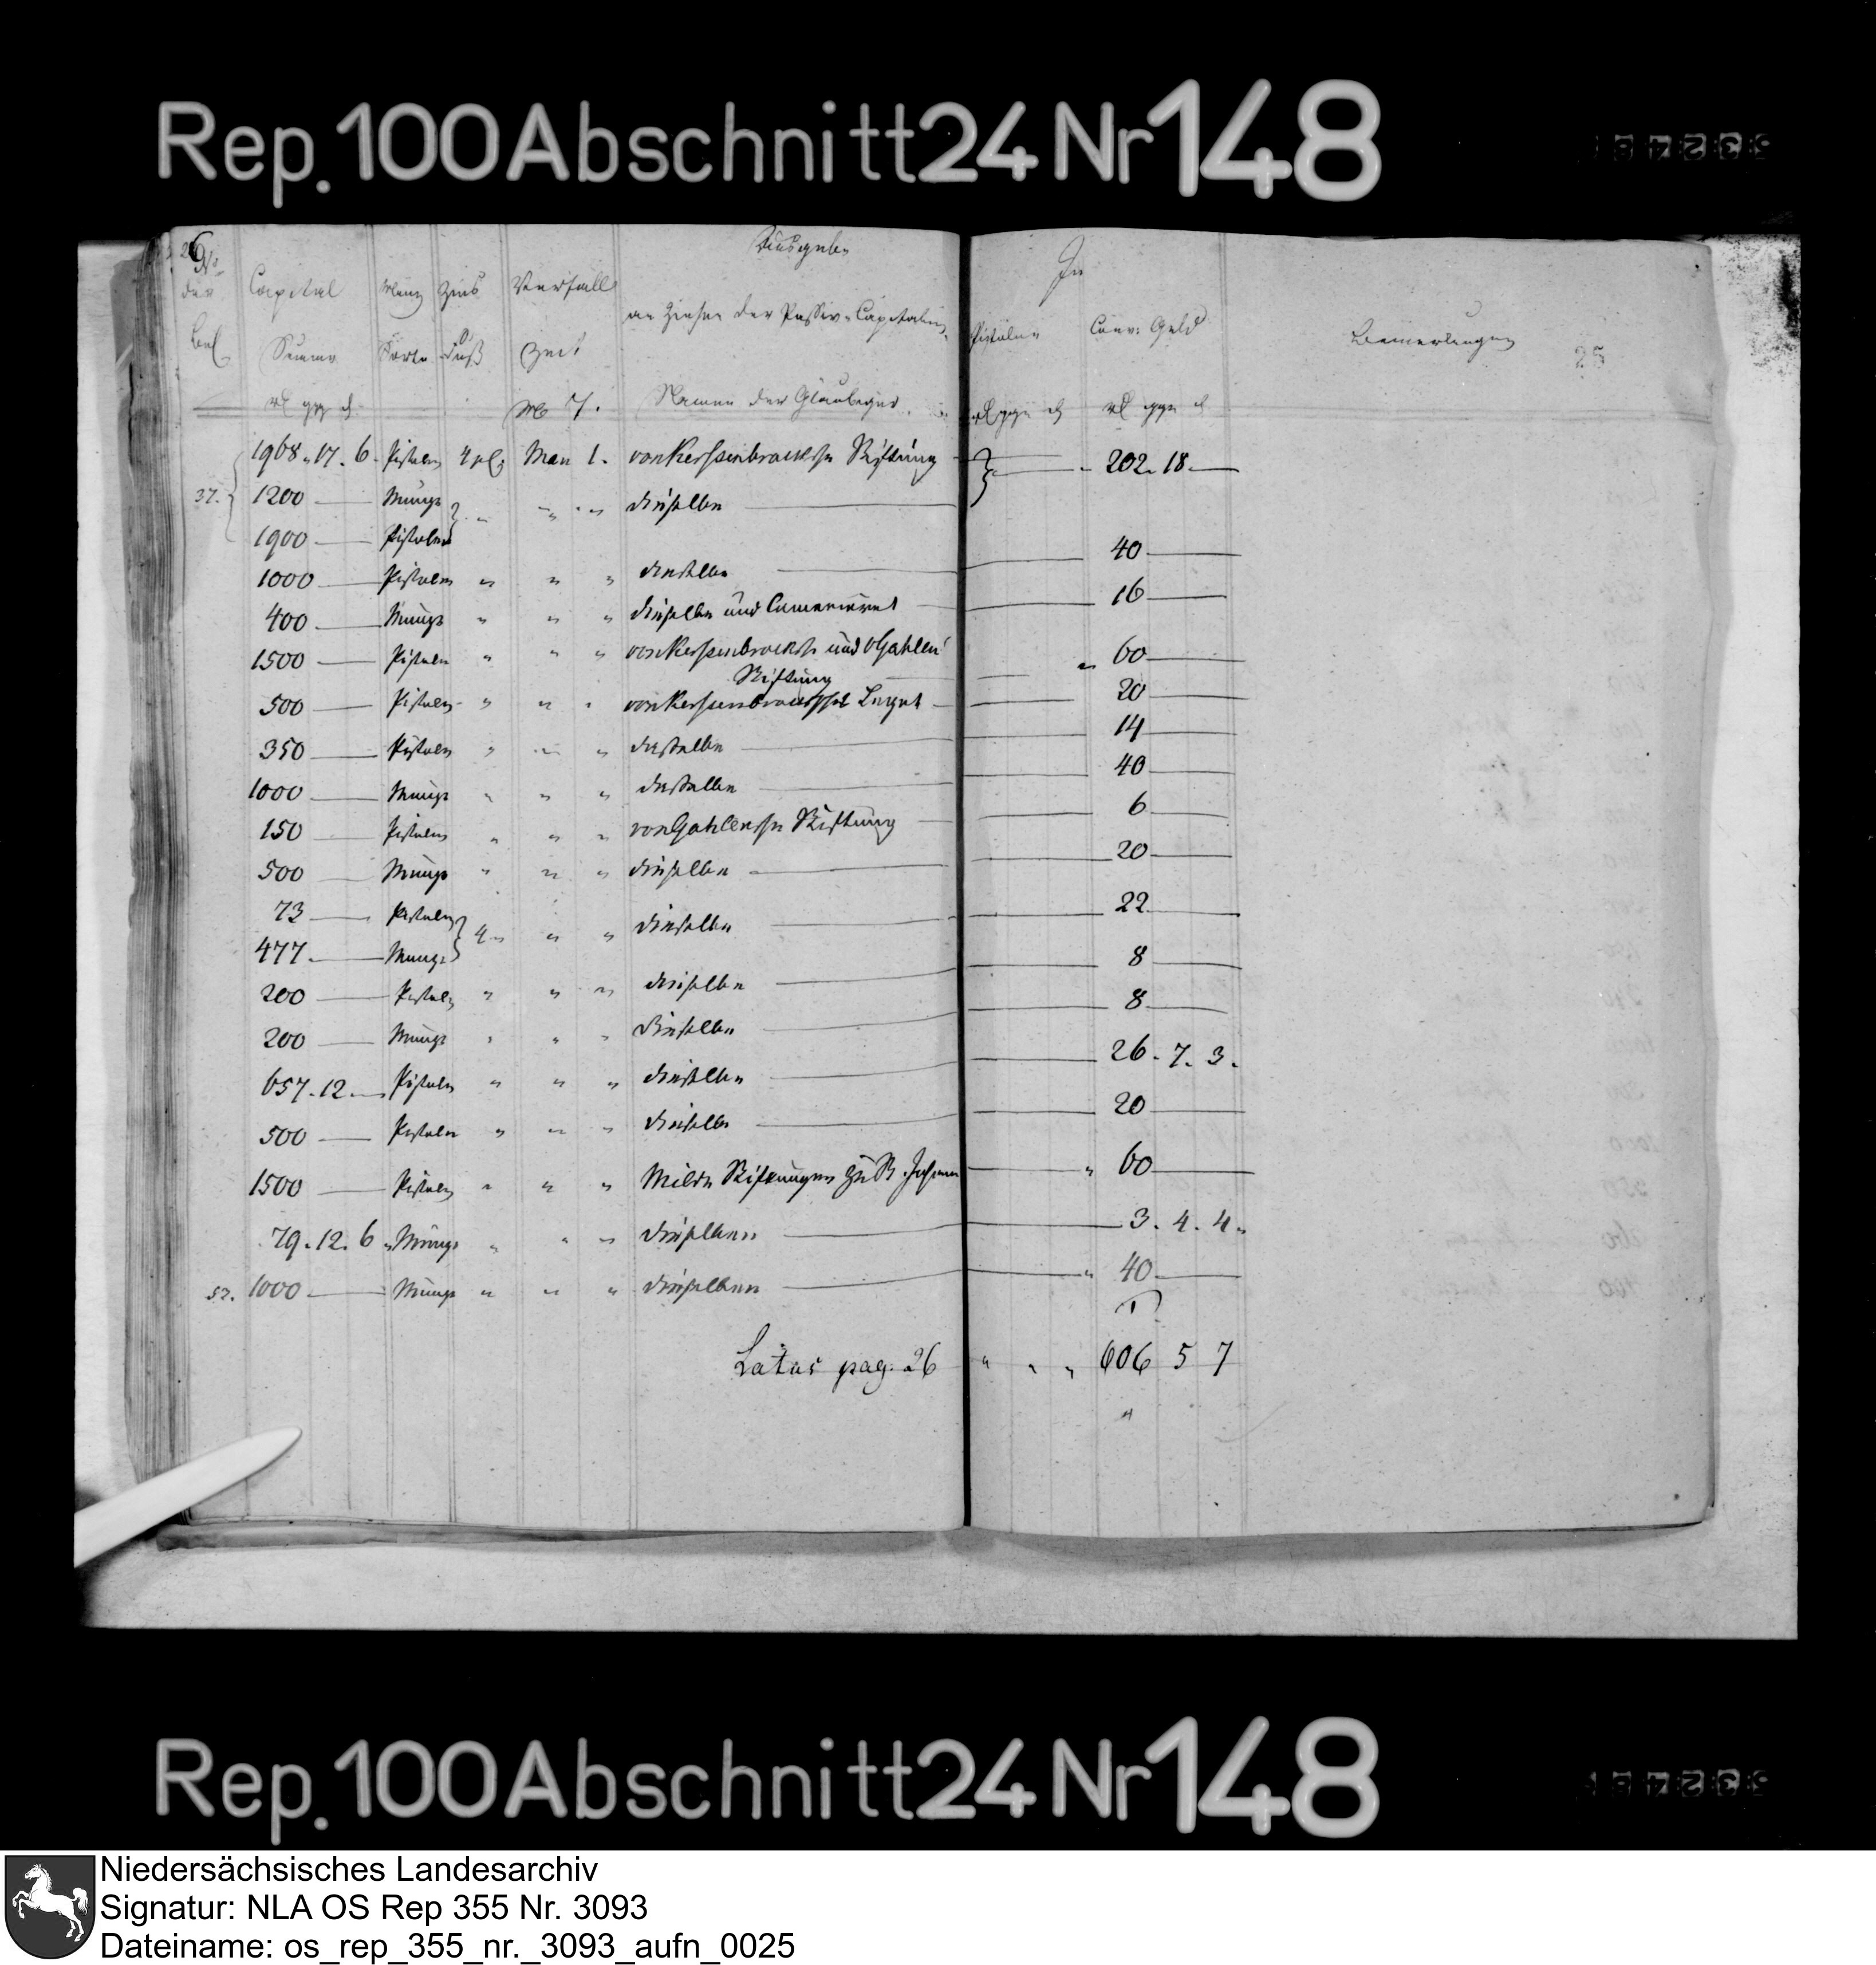 Rep. 100 Abschnitt 24 Nr 148
26
Ausgabe
In
No
der
Bel.
Capital
Summe
Münz
Sorte
Zins
Fuß
Verfall
Zeit
an Zinsen der Passiv-Capitalien
Namen der Gläubiger
Pistolen
Conv: Geld
Bemerkungen
25
1968 " 17 . 6 Pistolen 4 pC May 1. von Kerssenbrocksche Stiftung 202. 18 —
37. 1200 — Münze " " " dieselbe —
1900 — Pistolen
1000 — Pistolen " " " dieselbe — 40 —
400 — Münze " " " dieselbe und — 16 —
1500 — Pistolen " " " von Kerssenbrocksche und v Gahlen " 60 —
Stiftung
500 — Pistolen " " " von Kerssenbrocksche Legat — 20 —
350 — Pistolen " " " dasselbe — 14 —
1000 — Münze " " " dasselbe — 40 —
150 — Pistolen " " " von Gahlensche Stiftung — 6 —
500 — Münze " " " dieselbe — 20 —
73 — Pistolen 4 " " " dieselbe — 22 —
477 — Münze
200 — Pistolen " " " dieselbe — 8 —
200 — Münze " " " dieselbe — 8 —
657 . 12 — Pistolen " " " dieselbe — 26 . 7 . 3 .
500 — Pistolen " " " dieselbe — 20 —
1500 — Pistolen " " " Milde Stiftungen zu St. Johann " 60 —
79 . 12 . 6 " Münze " " " dieselben — 3 . 4 . 4 "
52. 1000 — Münze " " " dieselben — " 40 —
Latus pag. 26 " " " 606 5 7
Rep. 100 Abschnitt 24 Nr 148
Niedersächsisches Landesarchiv
Signatur: NLA OS Rep 355 Nr. 3093
Dateiname: os_rep_355_nr._3093_aufn_0025